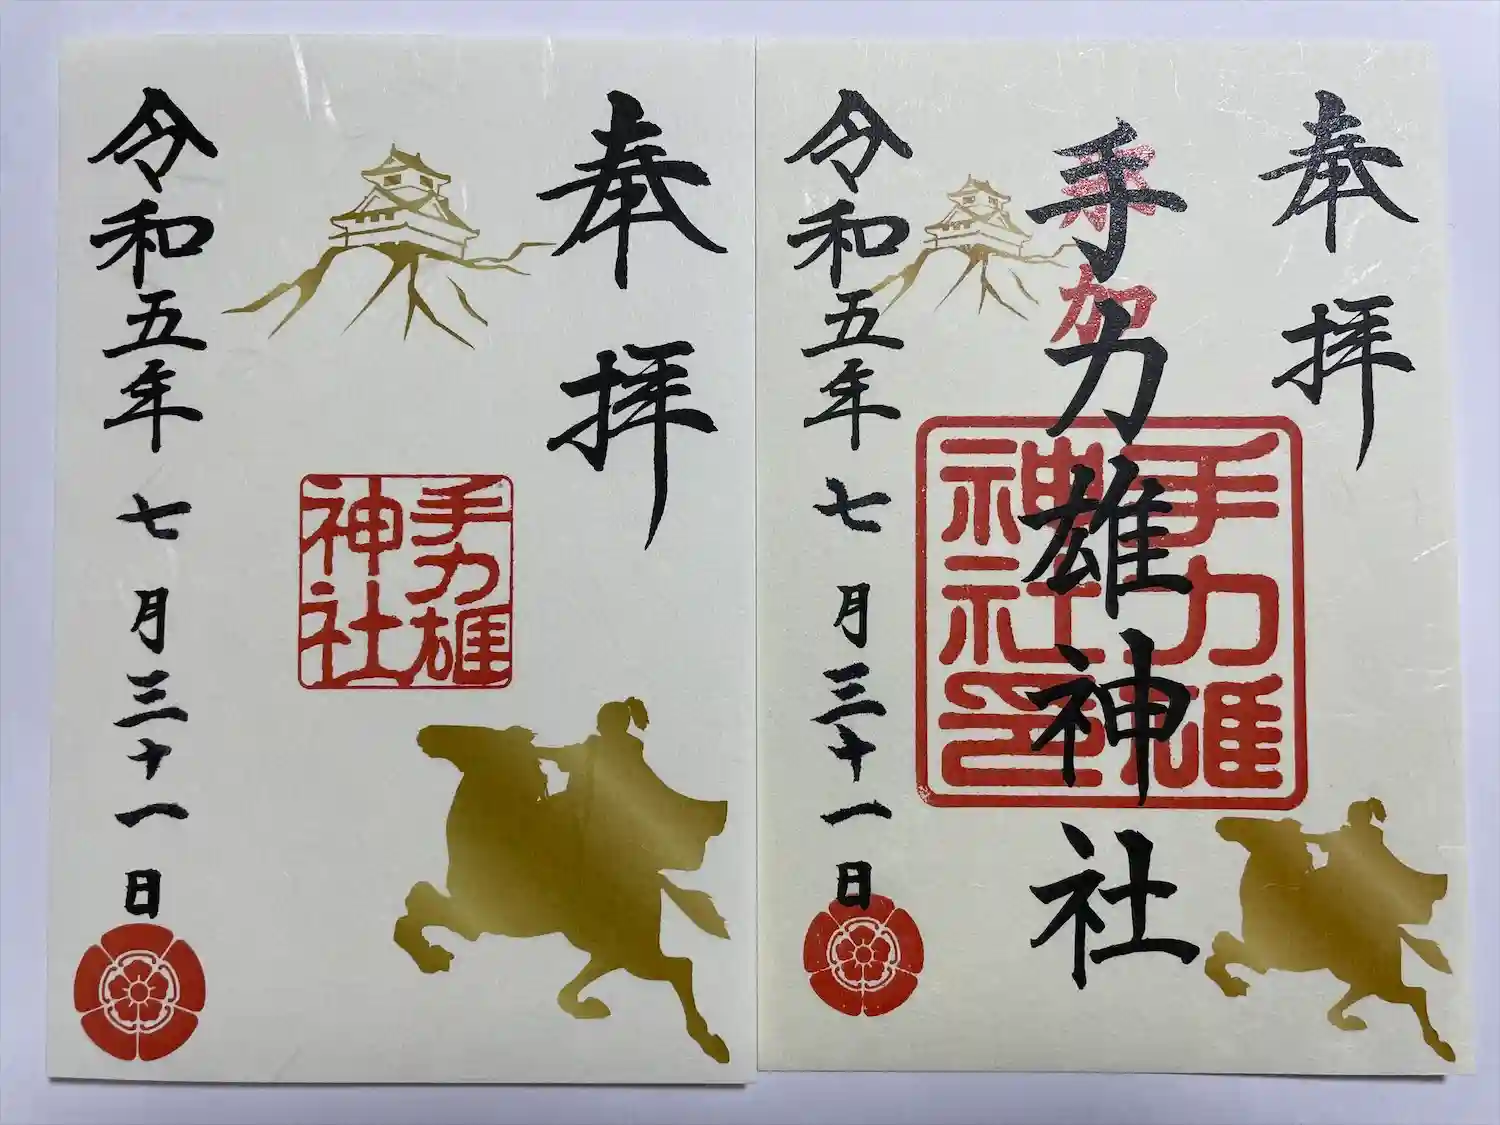 奉拝
手力雄
神社
令和五年七月三十一日
奉拝
那加
手力雄神社
手力雄
神社印
令和五年七月三十一日